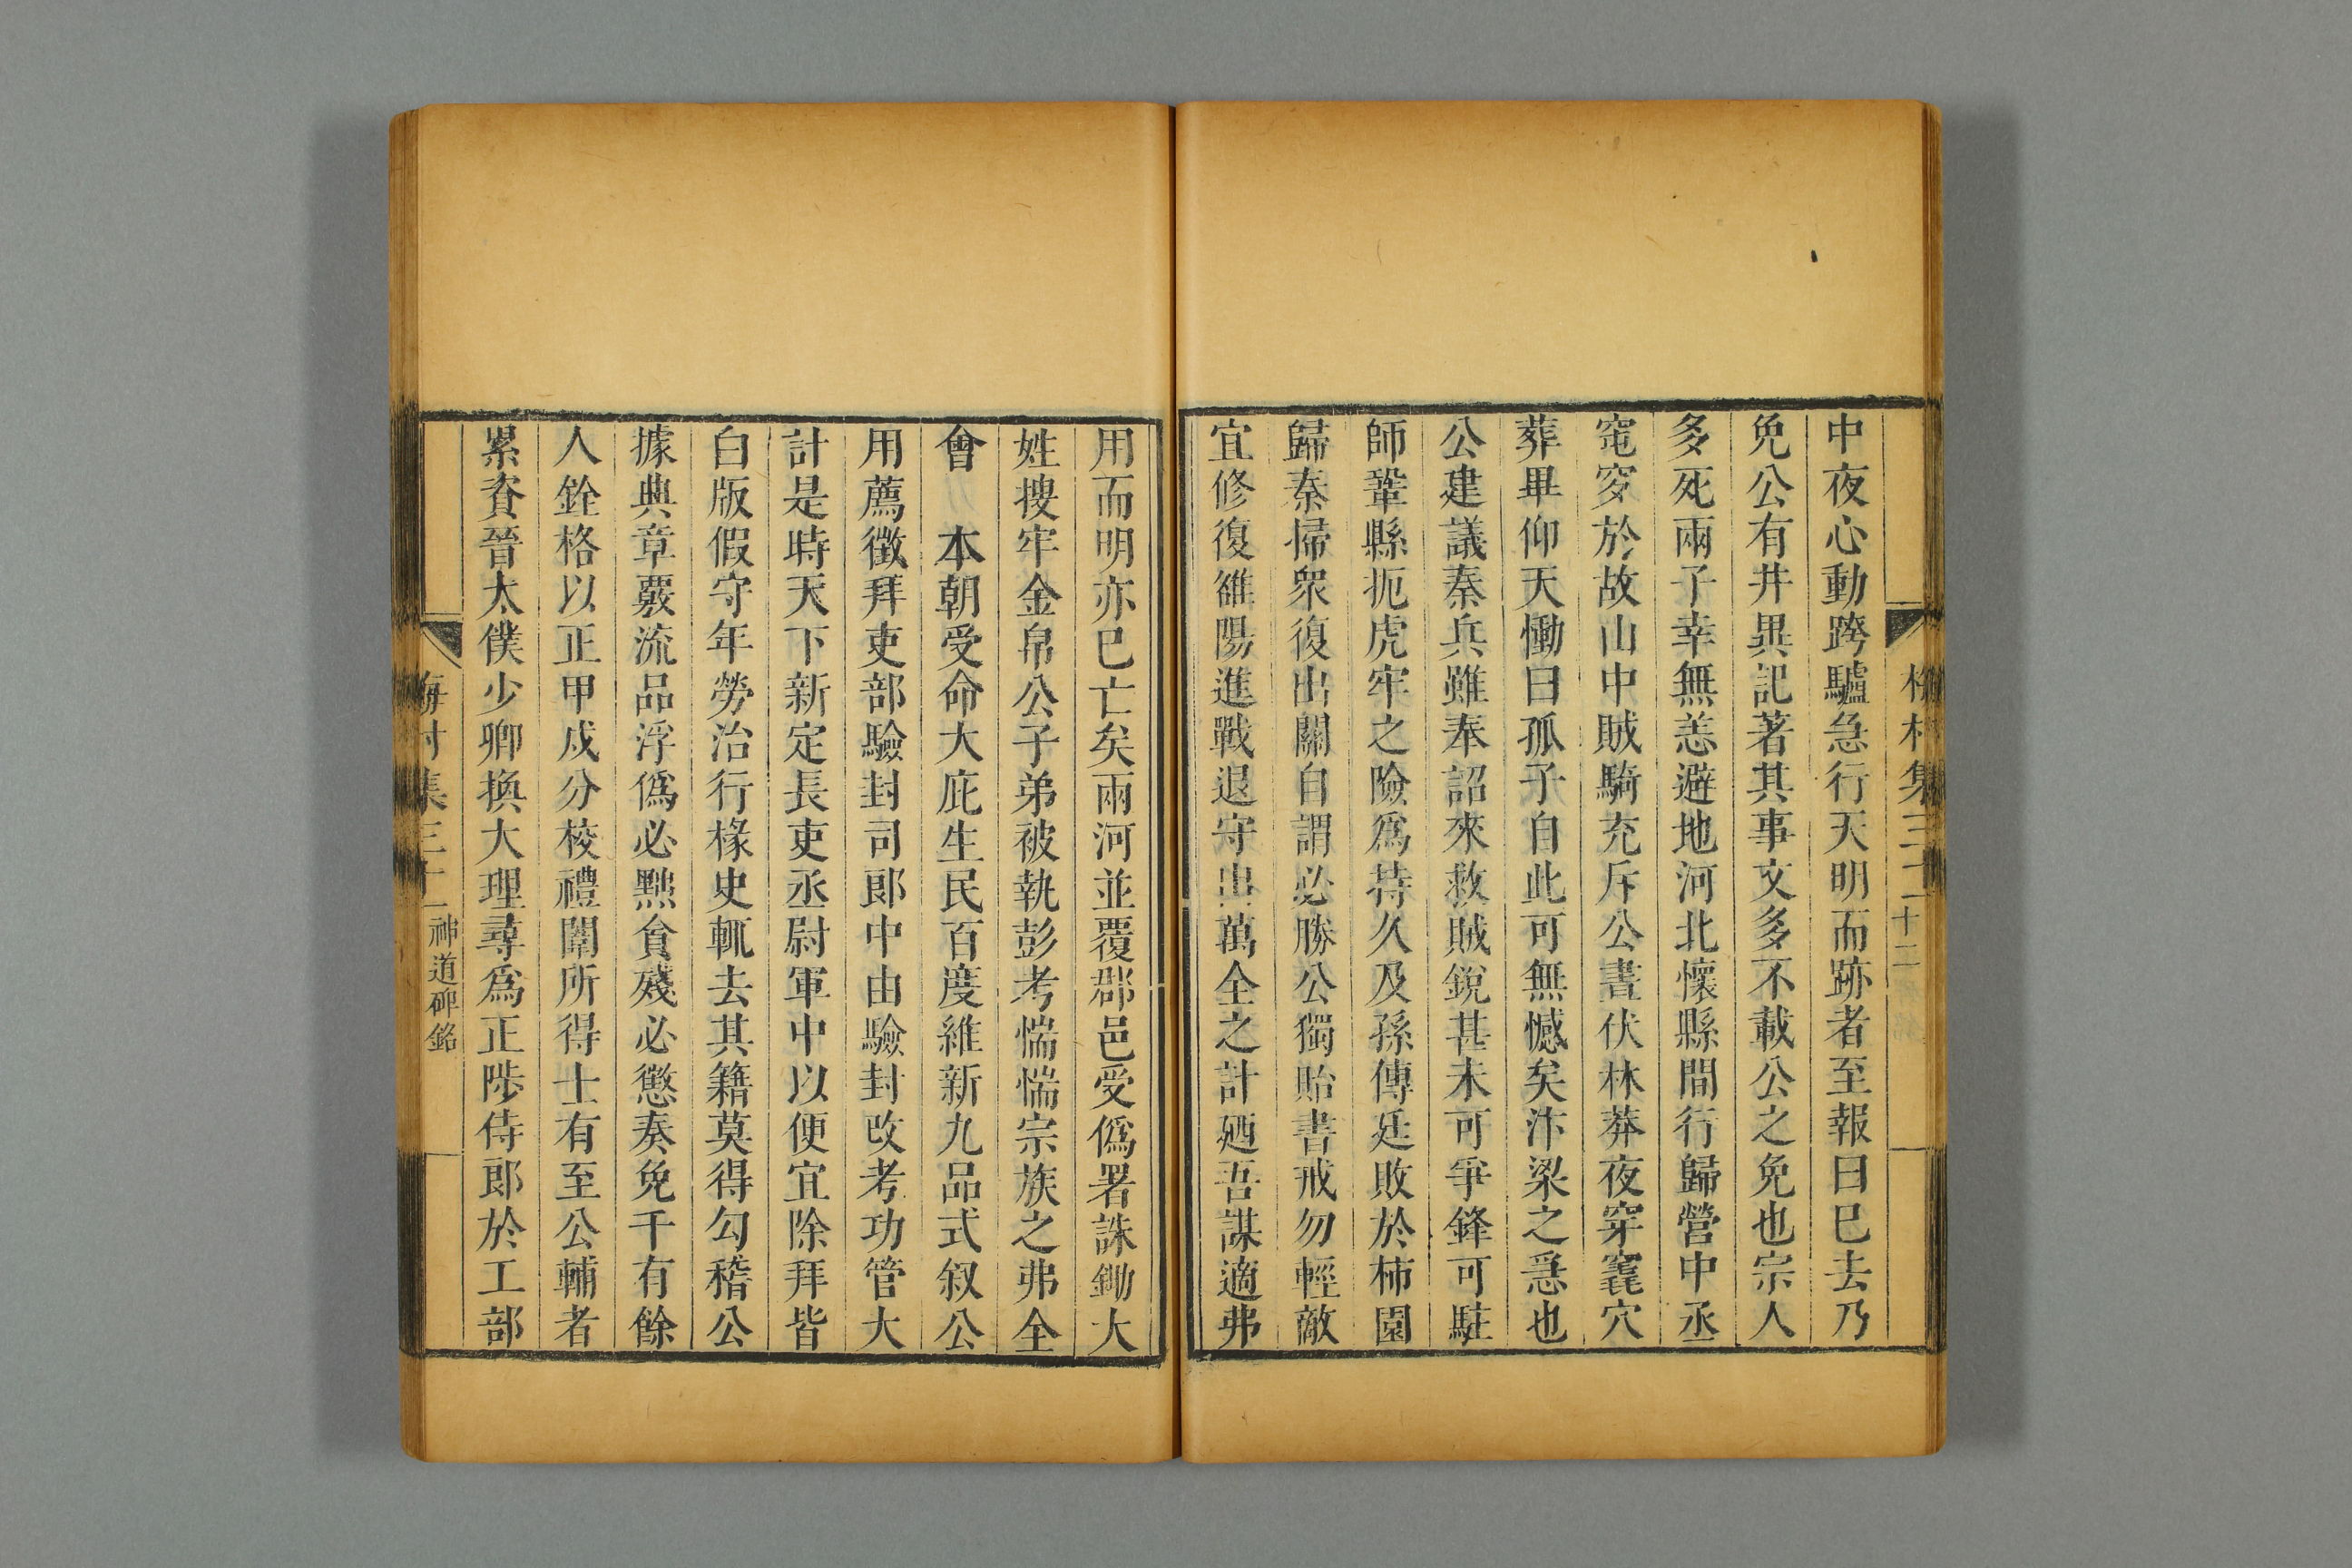 梅村集三十一 十二
中夜心動跨驢急行天明而跡者至報曰巳去乃
免公有井異記著其事文多不載公之免也宗人
多死兩子幸無恙避地河北懷縣間行歸營中丞
窀穸於故山中賊騎充斥公晝伏林莽夜穿窀穴
葬畢仰天慟曰孤子自此可無憾矣汴梁之急也
公建議秦兵雖奉詔來救賊銳甚未可爭鋒可駐
師鞏縣扼虎牢之險爲持久及孫傳廷敗於柿園
歸秦掃衆復出關自謂必勝公獨貽書戒勿輕敵
宜修復雒陽進戰退守出萬全之計廼吾謀適弗
用而明亦巳亡矣兩河並覆郡邑受僞署誅鋤大
姓搜牢金帛公子弟被執彭考惴惴宗族之弗全
會 本朝受命大庇生民百度維新九品式叙公
用薦徵拜吏部驗封司郎中由驗封改考功管大
計是時天下新定長吏丞尉軍中以便宜除拜皆
白版假守年勞治行椽史輒去其籍莫得勾稽公
據典章覈流品浮僞必黜貪殘必懲奏免千有餘
人銓格以正甲戍分校禮闈所得士有至公輔者
累資晉太僕少卿換大理尋爲正陟侍郎於工部
梅村集三十一 神道碑銘